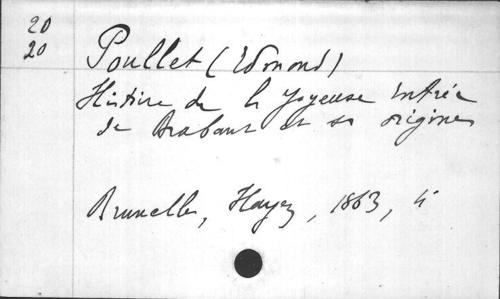 20
20
Poullet (Edmond)
Histoire de la Joyeuse Entrée
de Brabant et ses origines
Bruxelles, Hayez, 1863, 4°